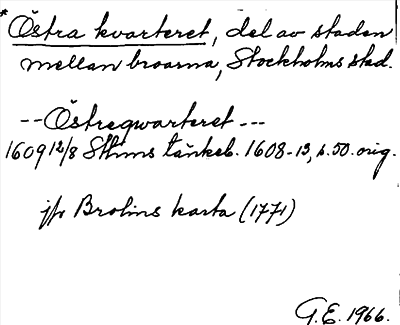 * Östra kvarteret, del av staden
mellan broarna, Stockholms stad.
-- Östreqwarteret ---
1609 12/8 Sthms tänkeb. 1608-13, s. 50. orig.
jfr Brolins karta (1771)
G.E. 1966.